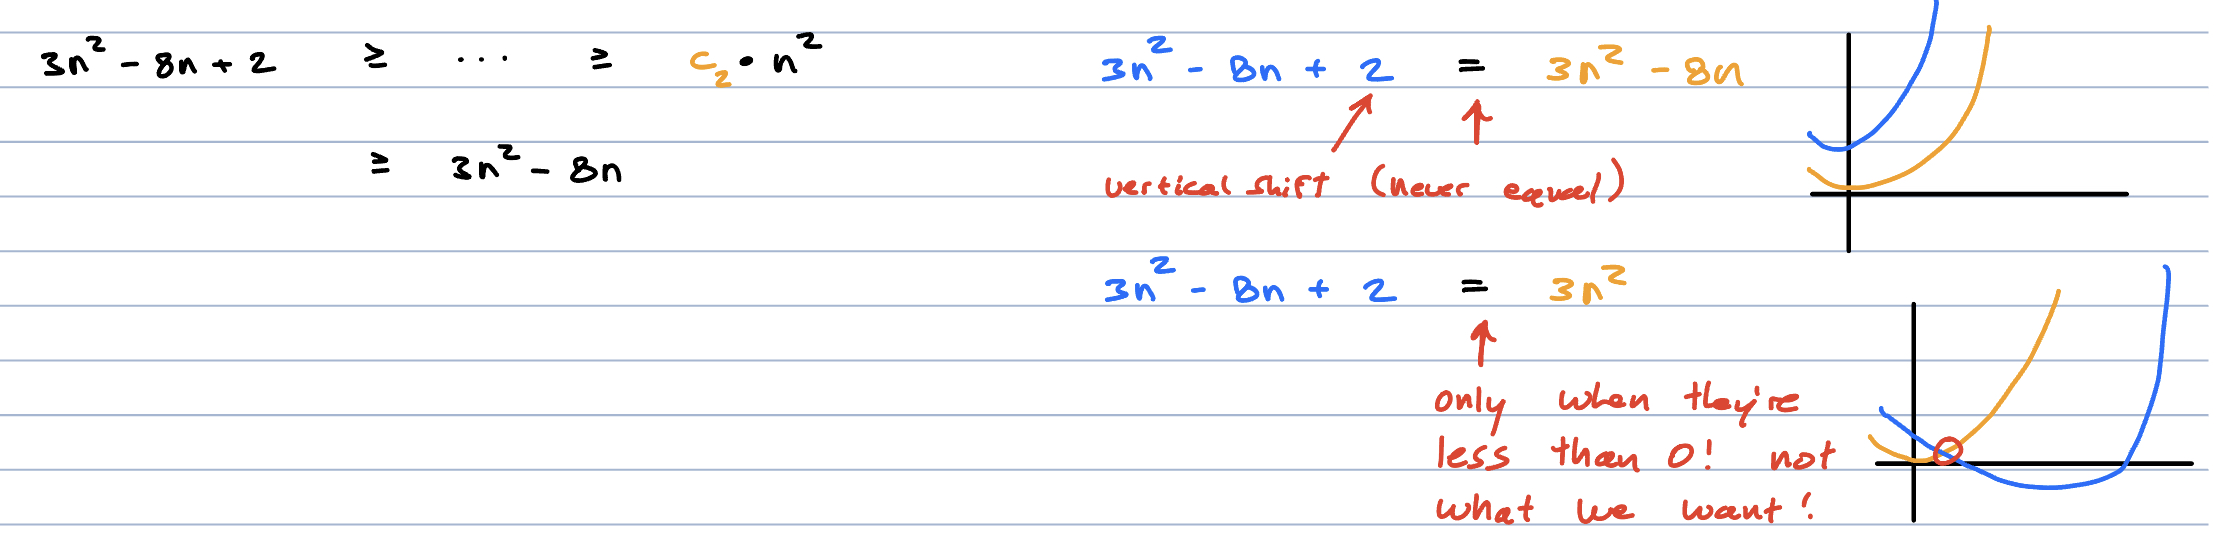 3n² - 8n + 2 ≥ ... ≥ c₂ • n²
≥ 3n² - 8n
3n² - 8n + 2 = 3n² - 8n
vertical shift (never equal)
3n² - 8n + 2 = 3n²
only when they're
less than 0! not
what we want!